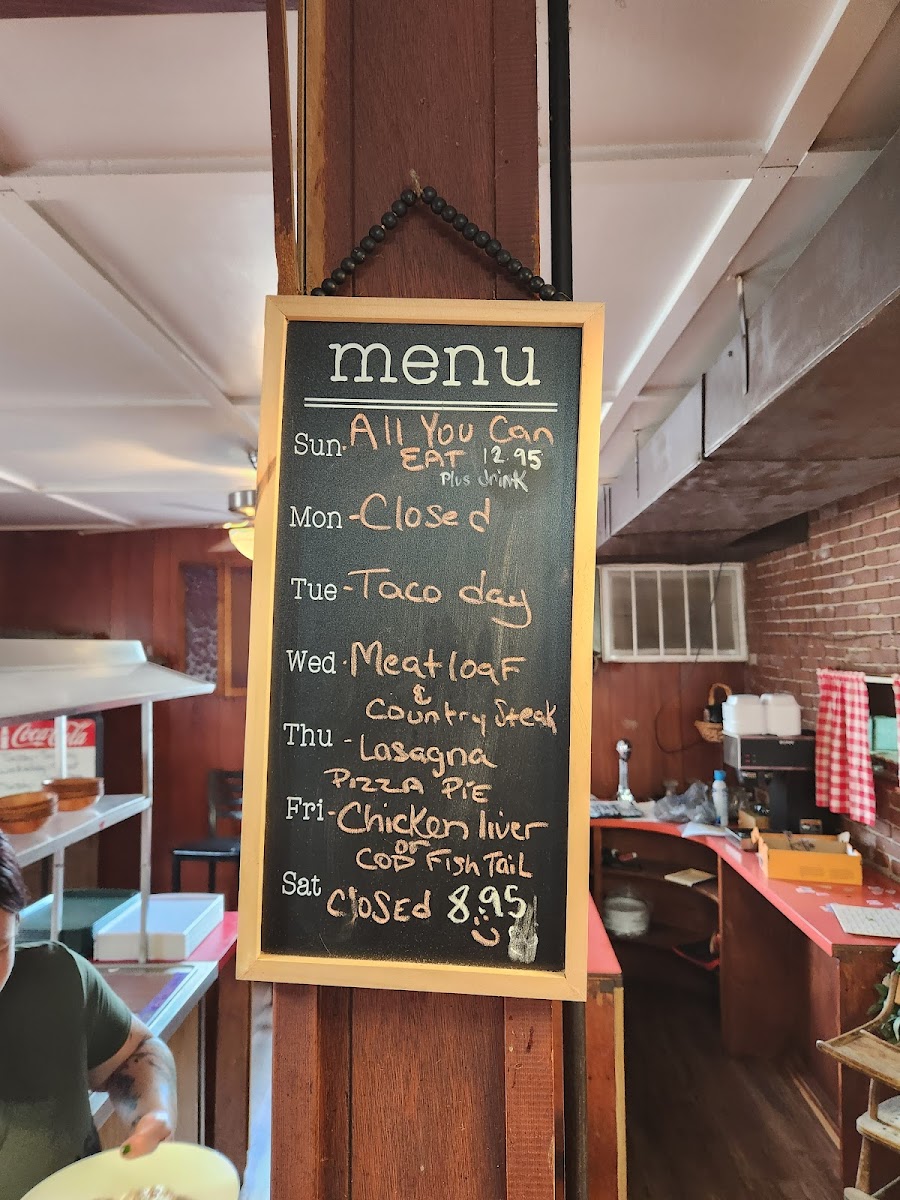 menu
Sun- All You Can
EAT 12.95
Plus drink
Mon - Closed
Tue - Taco day
Wed - Meatloaf
&
Country Steak
Thu - Lasagna
PIZZA PIE
Fri - Chicken liver
or
COD Fish Tail
Sat Closed 8.95
Coca-Cola